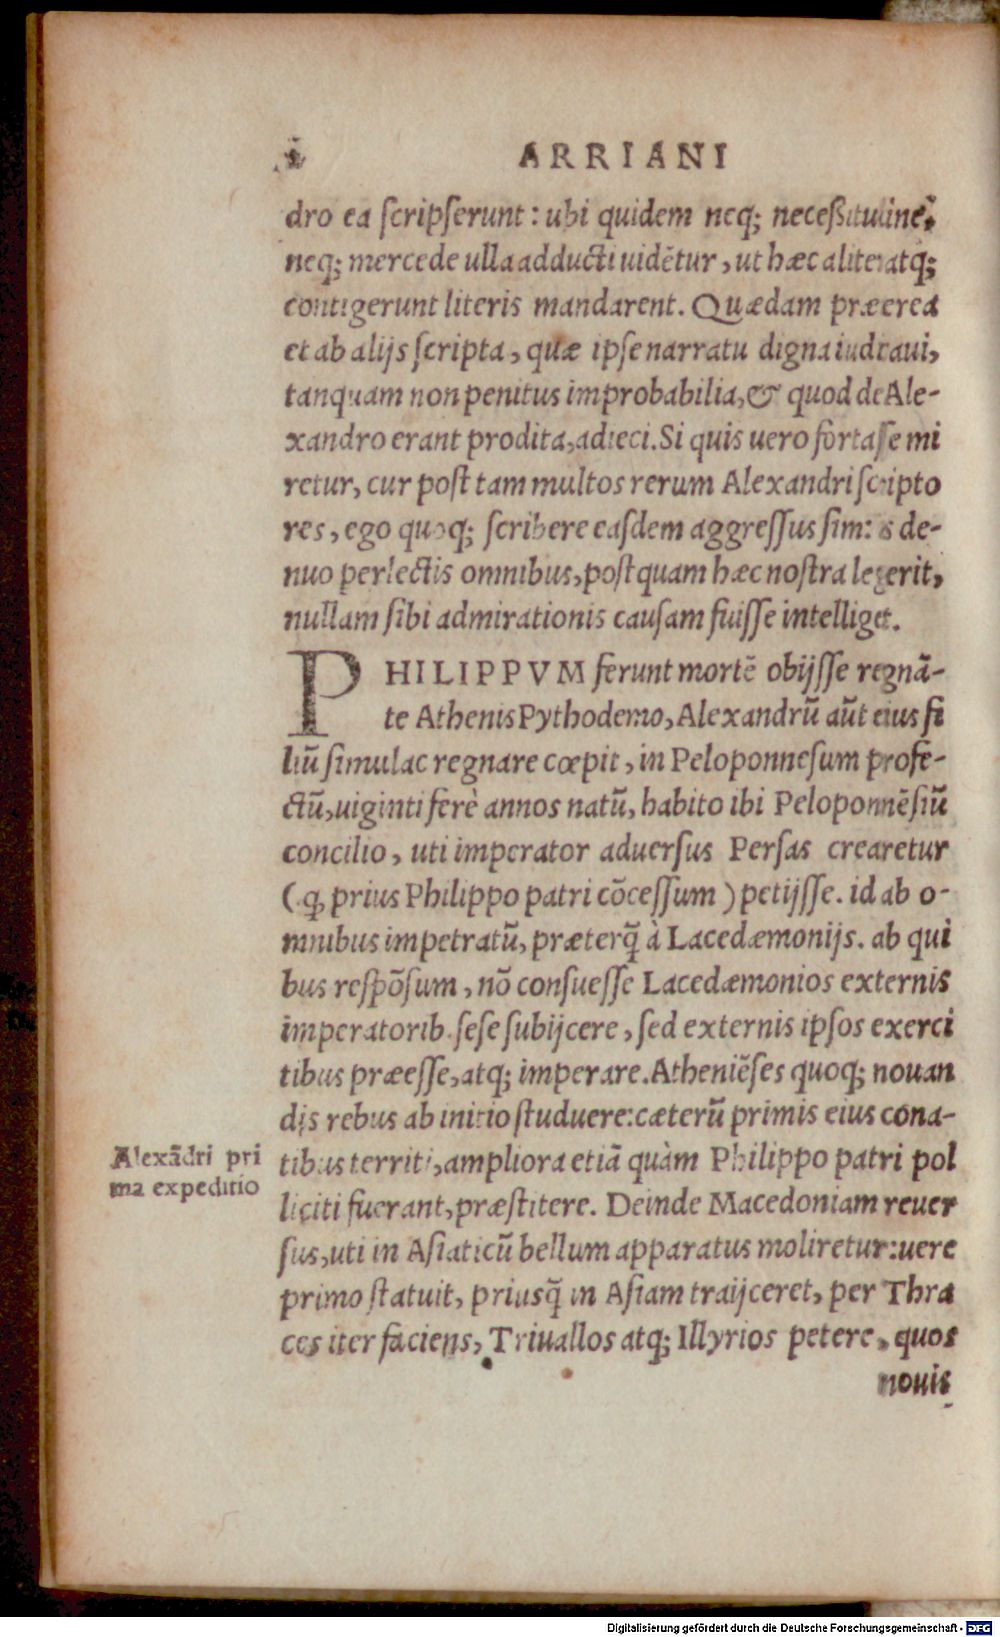 ARRIANI
dro ea ſcripſerunt: ubi quidem neq; neceßitudine,
neq; mercede ulla adducti uidētur, ut hæc aliter atq;
contigerunt literis mandarent. Quædam præerea
et ab alijs ſcripta, quæ ipſe narratu digna iudicaui,
tanquam non penitus improbabilia, & quod de Ale-
xandro erant prodita, adieci. Si quis uero fortaſſe mi
retur, cur poſt tam multos rerum Alexandri ſcripto
res, ego quoq; ſcribere eaſdem aggreſſus ſim: is de-
nuo perlectis omnibus, poſtquam hæc noſtra legerit,
nullam ſibi admirationis cauſam fuiſſe intelliget.
PHILIPPVM ferunt mortē obijſſe regnā-
te Athenis Pythodemo, Alexandrū aūt eius fi
liū ſimulac regnare cœpit, in Peloponneſum profe-
ctū, uiginti ferè annos natū, habito ibi Peloponnēſiū
concilio, uti imperator aduerſus Perſas crearetur
(ꝙ prius Philippo patri cōceſſum) petijſſe. id ab o-
mnibus impetratū, præterq̄ à Lacedæmonijs. ab qui
bus reſpōſum, nō conſueſſe Lacedæmonios externis
imperatorib. ſeſe ſubijcere, ſed externis ipſos exerci
tibus præeſſe, atq; imperare. Atheniēſes quoq; nouan
dis rebus ab initio ſtuduere: cæterū primis eius cona-
Alexādri pri
ma expeditio
tibus territi, ampliora etiā quàm Philippo patri pol
liciti fuerant, præſtitere. Deinde Macedoniam reuer
ſus, uti in Aſiaticū bellum apparatus moliretur: uere
primo ſtatuit, priusq̄ in Aſiam traijceret, per Thra
ces iter faciens, Triuallos atq; Illyrios petere, quos
nouis
Digitalisierung gefördert durch die Deutsche Forschungsgemeinschaft - DFG